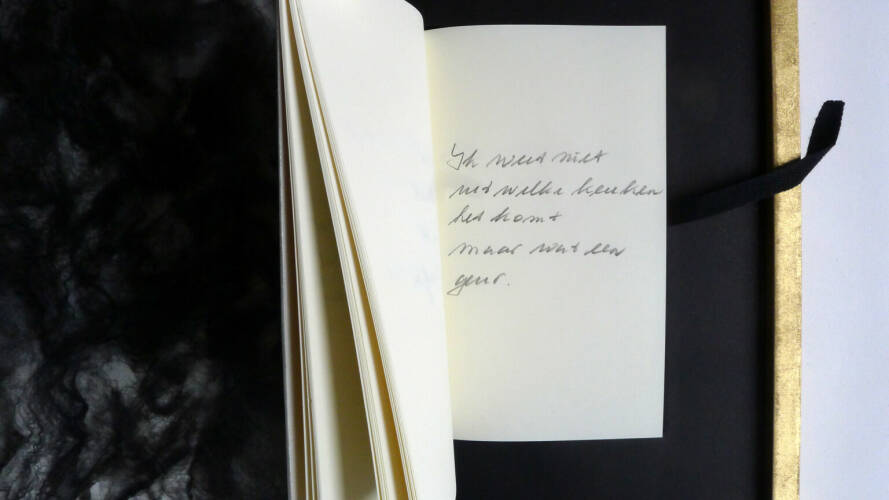 Ik weet niet
uit welke keuken
het komt
maar wat een
geur.